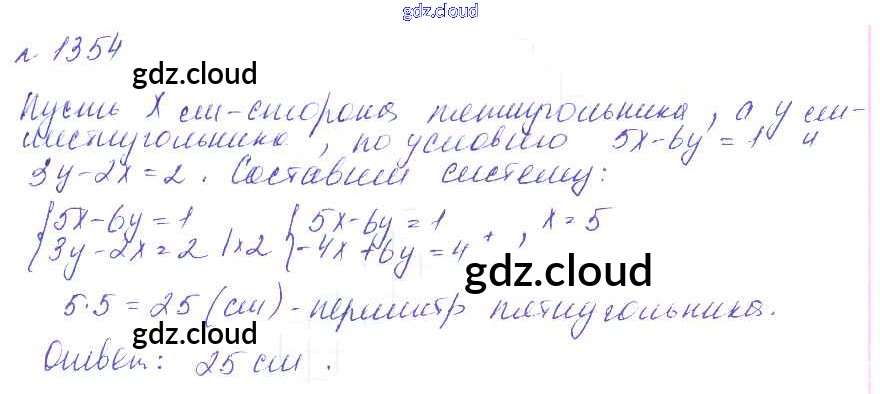 gdz.cloud
№ 1354
gdz.cloud
Пусть x см-сторона пятиугольника, а y см-
шестиугольника, по условию 5x-6y=1 и
3y-2x=2. Составим систему:
{5x-6y=1 {5x-6y=1
{3y-2x=2 |×2 {-4x+6y=4 + , x=5
gdz.cloud
5·5=25(см)-периметр пятиугольника.
gdz.cloud gdz.cloud
Ответ: 25 см.